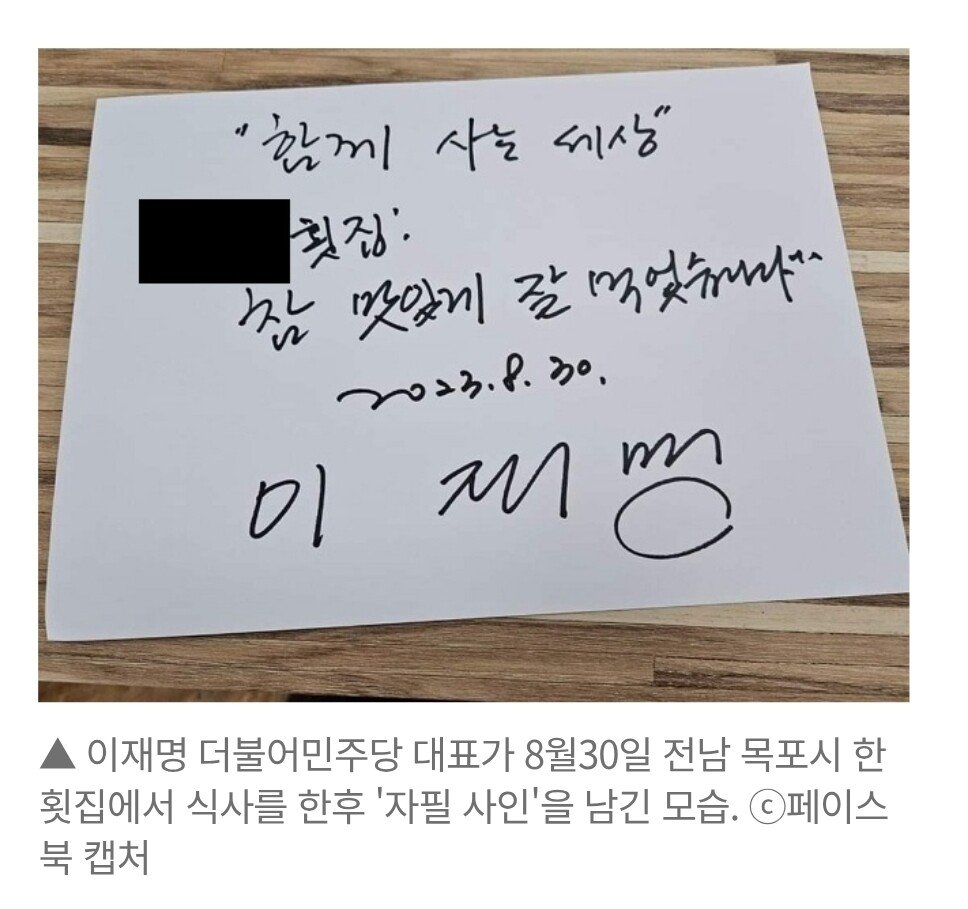 "함께 사는 세상"
횟집:
참 맛있게 잘 먹었습니다^^
2023. 8. 30.
이 재 명
▲ 이재명 더불어민주당 대표가 8월30일 전남 목포시 한
횟집에서 식사를 한후 '자필 사인'을 남긴 모습. ⓒ페이스
북 캡처